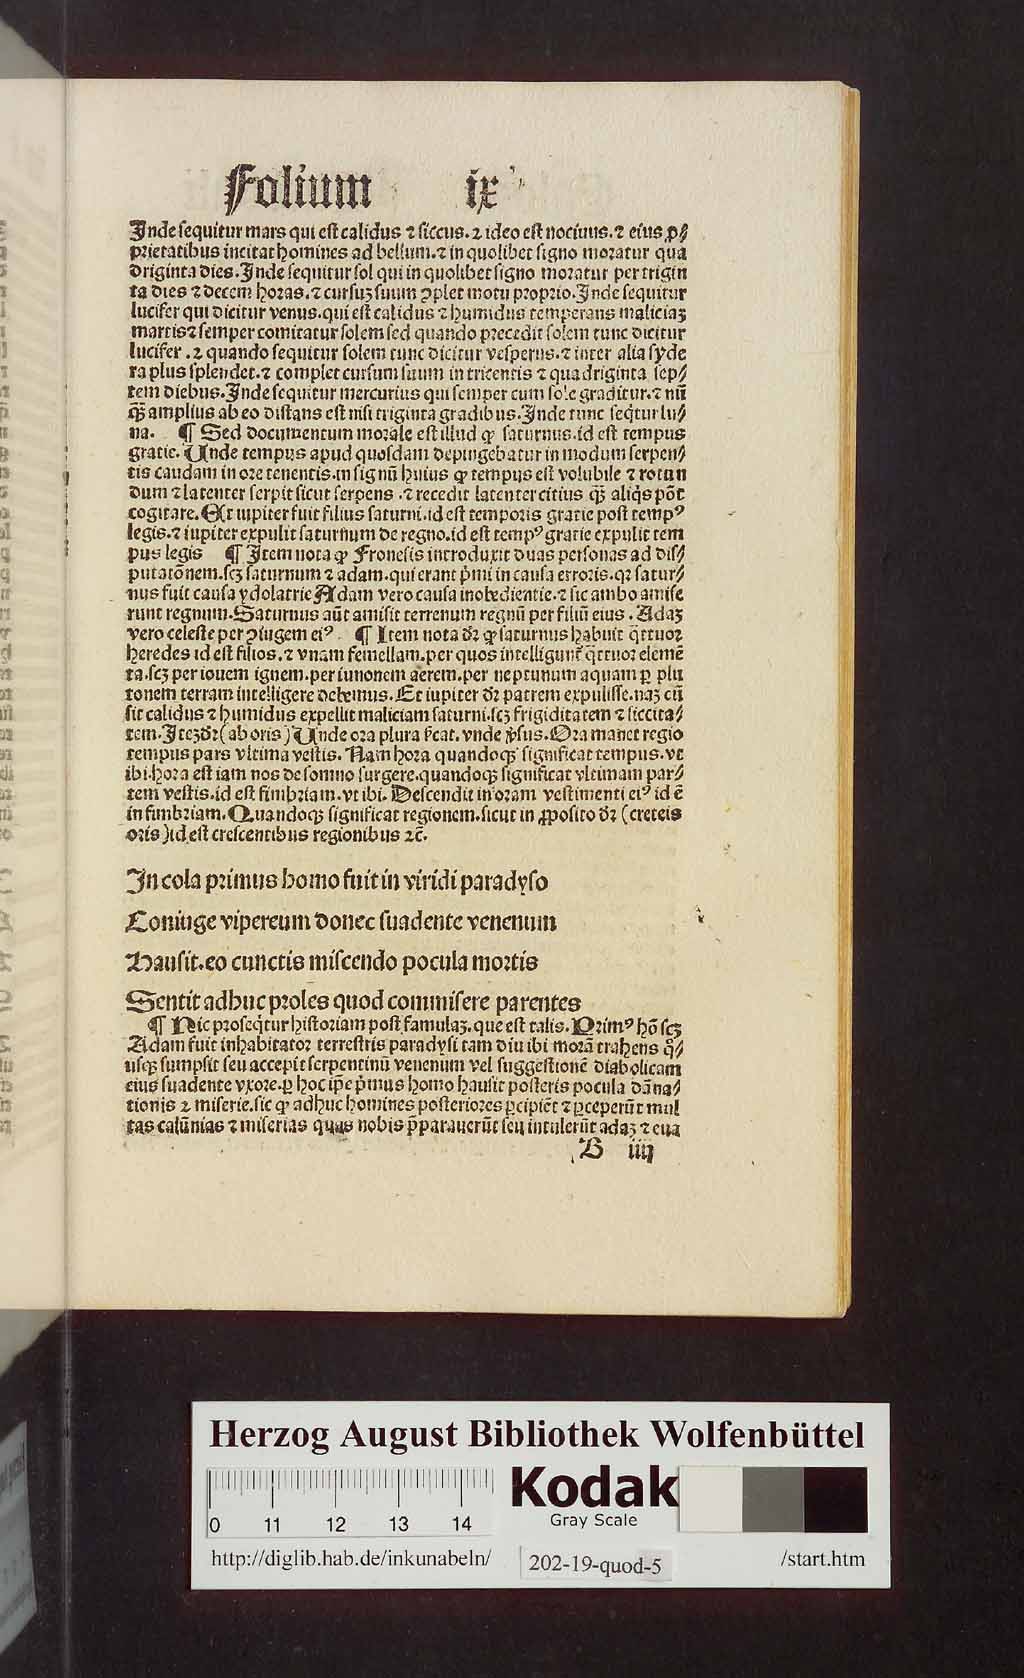 Folium ix
Inde sequitur mars qui est calidus ⁊ siccus. ⁊ ideo est nociuus. ⁊ eius ꝓ⸗
prietatibus incitat homines ad bellum. ⁊ in quolibet signo moratur qua
driginta dies. Inde sequitur sol qui in quolibet signo moratur per trigin
ta dies ⁊ decem horas. ⁊ cursuꝫ suum ꝯplet motu proprio. Inde sequitur
lucifer qui dicitur venus. qui est calidus ⁊ humidus temperans maliciaꝫ
martis ⁊ semper comitatur solem sed quando precedit solem tunc dicitur
lucifer . ⁊ quando sequitur solem tunc dicitur vesperus. ⁊ inter alia syde
ra plus splendet. ⁊ complet cursum suum in tricentis ⁊ quadriginta sep⸗
tem diebus. Inde sequitur mercurius qui semper cum sole graditur. ⁊ nū
q̄ȝ amplius ab eo distans est nisi triginta gradibus. Inde tunc seq̇tur lu⸗
na. ¶ Sed documentum morale est illud ꝙ saturnus. id est tempus
gratie. Unde tempus apud quosdam depingebatur in modum serpen⸗
tis caudam in ore tenentis. in signū huius ꝙ tempus est volubile ⁊ rotun
dum ⁊ latenter serpit sicut serpens . ⁊ recedit latenter citius q̄ȝ aliq̇s pōt
cogitare. Et iupiter fuit filius saturni. id est temporis gratie post tempꝰ
legis. ⁊ iupiter expulit saturnum de regno. id est tempꝰ gratie expulit tem
pus legis ¶ Item nota ꝙ Fronesis introduxit duas personas ad dis⸗
putatōnem. scꝫ saturnum ⁊ adam. qui erant p̄mi in causa erroris. qꝛ satur⸗
nus fuit causa ydolatrie Adam vero causa inobedientie. ⁊ sic ambo amise
runt regnum. Saturnus aūt amisit terrenum regnū per filiū eius . Adaꝫ
vero celeste per ꝯiugem eiꝰ. ¶ Item nota dꝛ ꝙ saturnus habuit q̄ttuor
heredes id est filios. ⁊ vnam femellam. per quos intelligunt̄ q̄ttuor elemē
ta. scꝫ per iouem ignem. per iunonem aerem. per neptunum aquam ꝑ plu
tonem terram intelligere debemus. Et iupiter dꝛ patrem expulisse. naꝫ cū
sit calidus ⁊ humidus expellit maliciam saturni. scꝫ frigiditatem ⁊ siccita⸗
tem. Iteꝫ dꝛ (ab oris) Unde ora plura s̄cat. vnde ꝟsus. Ora manet regio
tempus pars vltima vestis. Nam hora quandoqꝫ significat tempus. vt
ibi. hora est iam nos de somno surgere. quandoqꝫ significat vltimam par⸗
tem vestis. id est fimbriam. vt ibi. Descendit in oram vestimenti eiꝰ id ē
in fimbriam. Quandoqꝫ significat regionem. sicut in ꝓposito dꝛ (creteis
oris) id est crescentibus regionibus ⁊c̄.
Incola primus homo fuit in viridi paradyso
Coniuge vipereum donec suadente venenum
Hausit. eo cunctis miscendo pocula mortis
Sentit adhuc proles quod commisere parentes
¶ Hic proseq̇tur historiam post famulaꝫ. que est talis. Primꝰ hō scꝫ
Adam fuit inhabitator terrestris paradysi tam diu ibi morā trahens qͦ⸗
usqꝫ sumpsit seu accepit serpentinū venenum vel suggestionē diabolicam
eius suadente vxore. ꝑ hoc ip̄e p̄mus homo hausit posteris pocula dāna⸗
tionis ⁊ miserie. sic ꝙ adhuc homines posteriores ꝑcipiēt ⁊ ꝑceperūt mul
tas calūnias ⁊ miserias quas nobis p̄parauerūt seu intulerūt adaꝫ ⁊ eua
B iiij
Herzog August Bibliothek Wolfenbüttel
0 11 12 13 14
Kodak
Gray Scale
http://diglib.hab.de/inkunabeln/ 202-19-quod-5 /start.htm